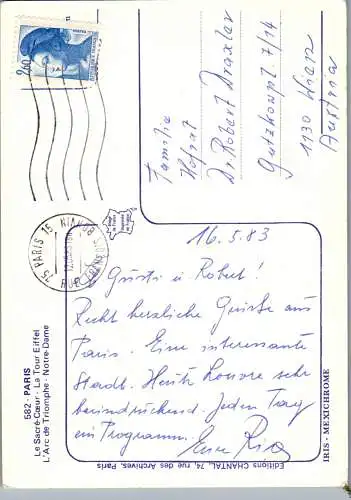 2,60
Familie
Hofrat
Dr. Robert Draxler
Gutzkowpl. 7/14
1130 Wien
Austria
75 PARIS 15
16.5.83
Gusti u. Robert!
Recht herzliche Grüße aus
Paris. Eine interessante
Stadt. Heute Louvre sehr
beeindruckend. Jeden Tag
ein Programm.
Eure Ria
582 - PARIS
Le Sacré-Cœur - La Tour Eiffel
L'Arc de Triomphe - Notre-Dame
Editions CHANTAL, 74, rue des Archives, Paris
IRIS - MEXICHROME